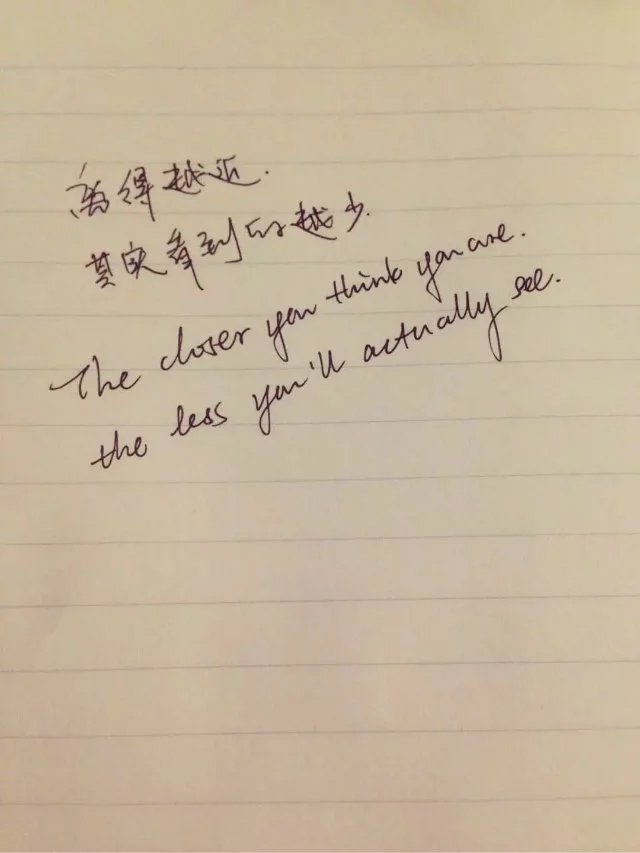 离得越近.
其实看到的越少.
The closer you think you are.
the less you'll actually see.